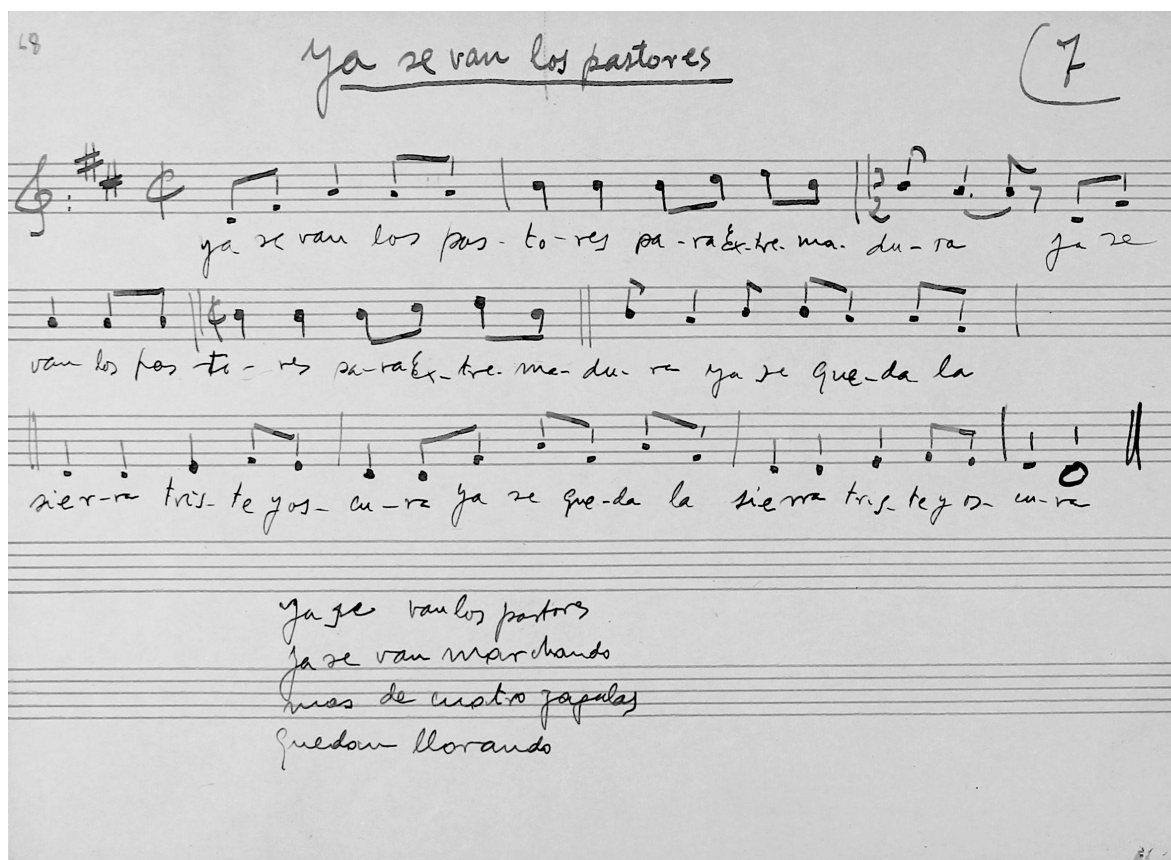 68
ya se van los pastores
7
ya se van los pas- to- res pa- ra Ex- tre- ma- du- ra ya se
van los pas- to- res pa- ra Ex- tre- ma- du- ra ya se que- da la
sier- ra tris- te y os- cu- ra ya se que- da la sierra tris- te y os- cu- ra
ya se van los pastores
ya se van marchando
mas de cuatro zagalas
quedan llorando